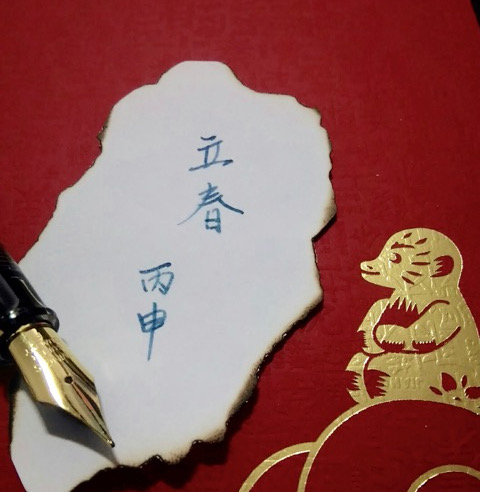 立春
丙申